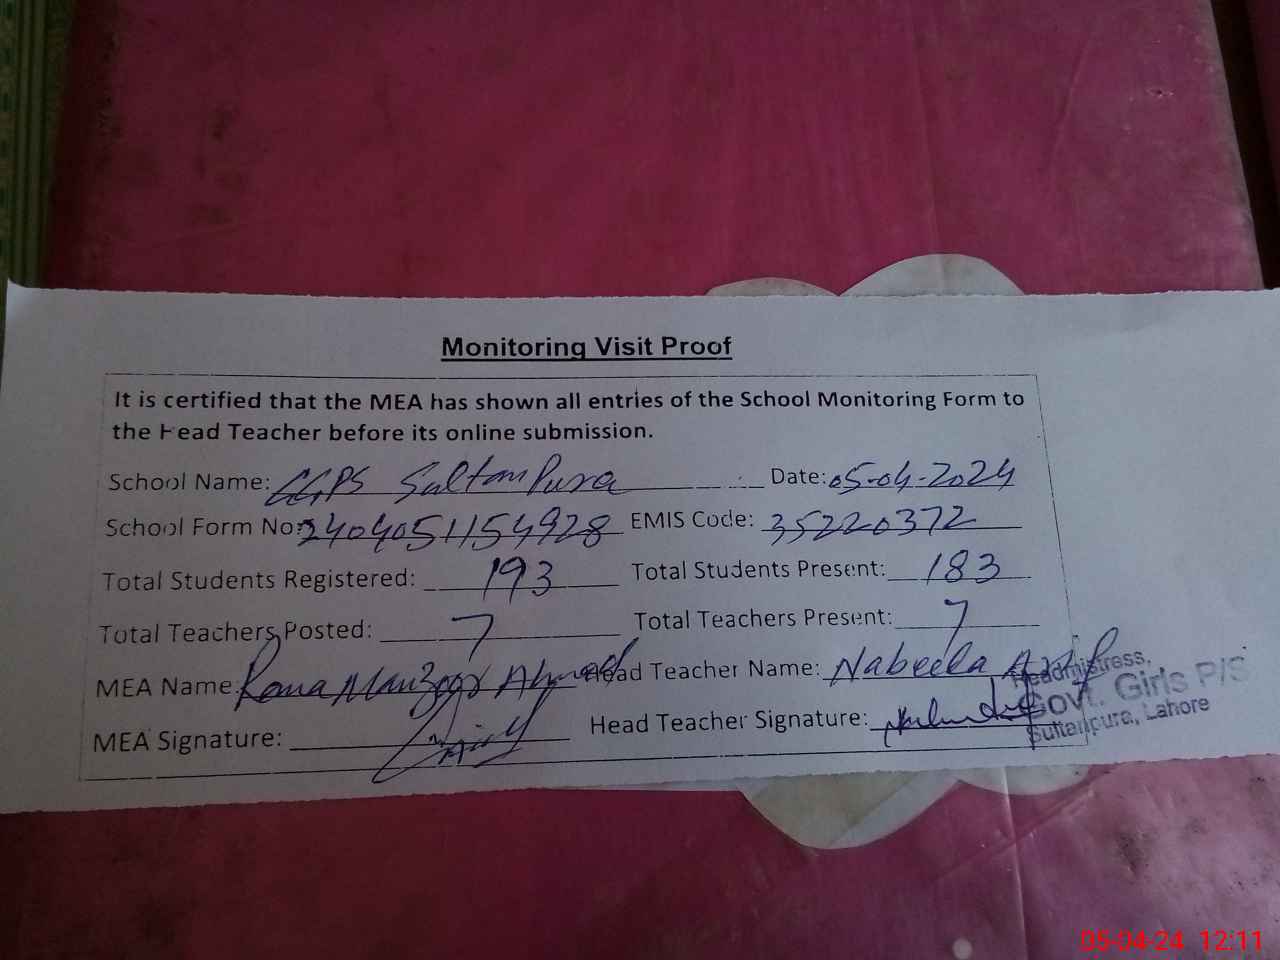 Monitoring Visit Proof
It is certified that the MEA has shown all entries of the School Monitoring Form to
the Head Teacher before its online submission.
School Name: GGPS Sultan Pura Date: 05-04-2024
School Form No: 2404051154928 EMIS Code: 35220372
Total Students Registered: 193 Total Students Present: 183
Total Teachers Posted: 7 Total Teachers Present: 7
MEA Name: Rana Manzoor Ahmed Head Teacher Name: Nabeela
MEA Signature: Head Teacher Signature:
Headmistress,
Govt. Girls P/S
Sultanpura, Lahore
05-04-24 12:11